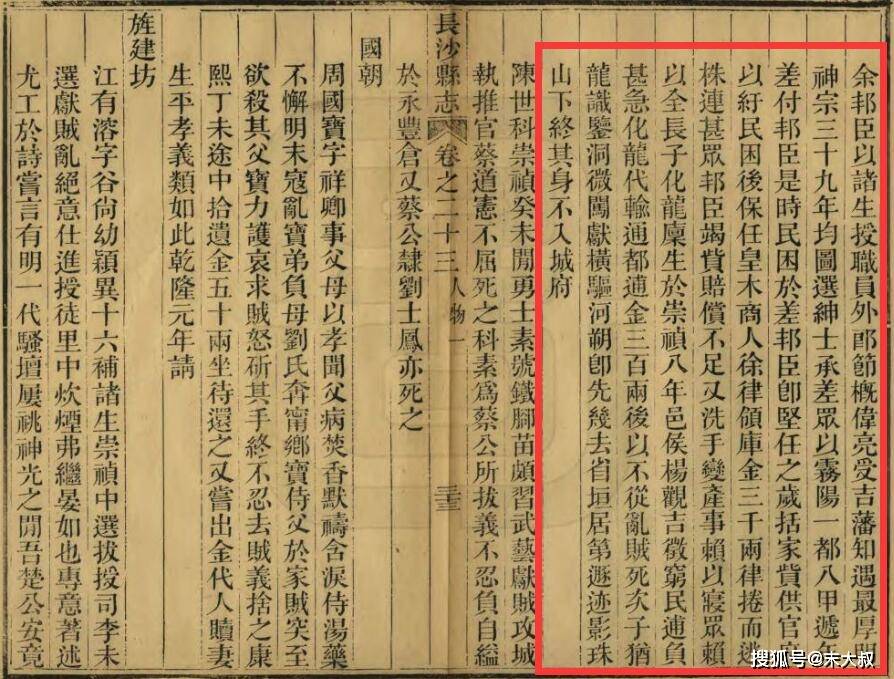 余邦臣以諸生授職員外郎節槪偉亮受吉藩知遇最厚明
神宗三十九年均圖選紳士承差眾以霧陽一都八甲遞年
差付邦臣是時民困於差邦臣卽堅任之歲括家貲供官
以紓民困後保任皇木商人徐律領庫金三千兩律捲而逃
株連甚眾邦臣竭貲賠償不足又洗手變產事賴以寢眾賴
以全長子化龍廩生於崇禎八年邑侯楊觀吉徵窮民逋負
甚急化龍代輸通都逋金三百兩後以不從亂賊死次子猶
龍識鑒洞微闖獻橫驅河朔卽先幾去省垣居第遯迹影珠
山下終其身不入城府
陳世科崇禎癸未閒勇士素號鐵腳苗頗習武藝獻賊攻城
執推官蔡道憲不屈死之科素爲蔡公所拔義不忍負自縊
長沙縣志 卷之二十三 人物一 三三
於永豐倉又蔡公隸劉士鳳亦死之
國朝
周國寶字祥卿事父母以孝聞父病焚香默禱含淚侍湯藥
不懈明末寇亂寶弟負母劉氏奔甯鄉寶侍父於家賊突至
欲殺其父寶力護哀求賊怒斫其手終不忍去賊義捨之康
熙丁未途中拾遺金五十兩坐待還之又嘗出金代人贖妻
生平孝義類如此乾隆元年請
旌建坊
江有溶字谷尙幼穎異十六補諸生崇禎中選拔授司李未
選獻賊亂絕意仕進授徒里中炊煙弗繼晏如也專意著述
尤工於詩嘗言有明一代騷壇屢祧神光之閒吾楚公安竟
搜狐号@末大叔